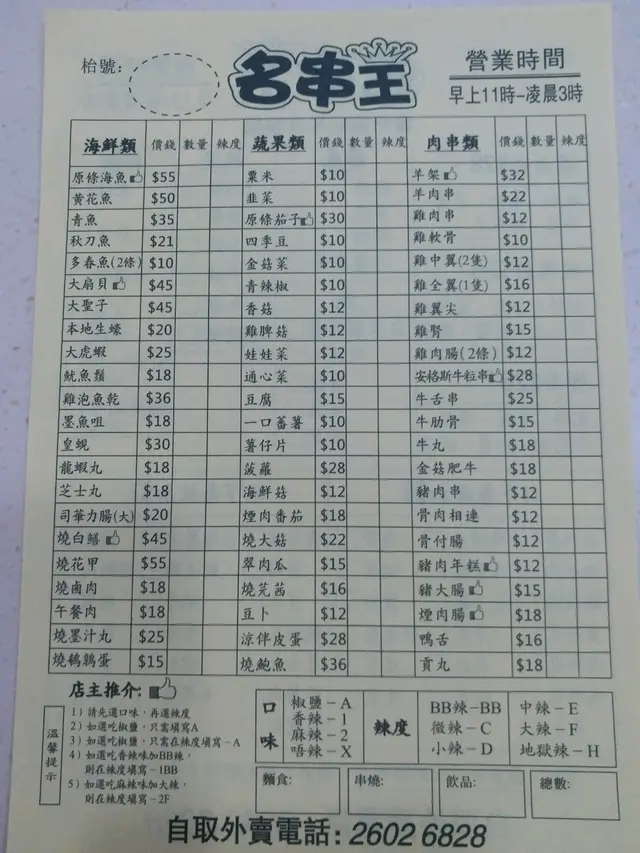 枱號:
名串王
營業時間
早上11時-凌晨3時
海鮮類 價錢 數量 辣度 蔬果類 價錢 數量 辣度 肉串類 價錢 數量 辣度
原條海魚 $55 粟米 $10 羊架 $32
黃花魚 $50 韭菜 $10 羊肉串 $22
青魚 $35 原條茄子 $30 雞肉串 $12
秋刀魚 $21 四季豆 $10 雞軟骨 $10
多春魚(2條) $10 金菇菜 $10 雞中翼(2隻) $12
大扇貝 $45 青辣椒 $10 雞全翼(1隻) $16
大聖子 $45 香菇 $12 雞翼尖 $12
本地生蠔 $20 雞脾菇 $12 雞腎 $15
大虎蝦 $25 娃娃菜 $12 雞肉腸(2條) $12
魷魚鬚 $18 通心菜 $10 安格斯牛粒串 $28
雞泡魚乾 $36 豆腐 $15 牛舌串 $25
墨魚咀 $18 一口蕃薯 $10 牛肋骨 $15
皇蜆 $30 薯仔片 $10 牛丸 $18
龍蝦丸 $18 菠蘿 $28 金菇肥牛 $18
芝士丸 $18 海鮮菇 $12 豬肉串 $12
司華力腸(大) $20 煙肉番茄 $18 骨肉相連 $12
燒白鱔 $45 燒大菇 $22 骨付腸 $12
燒花甲 $55 翠肉瓜 $15 豬肉年糕 $12
燒鹵肉 $18 燒芫茜 $16 豬大腸 $15
午餐肉 $18 豆卜 $12 煙肉腸 $18
燒墨汁丸 $25 涼伴皮蛋 $28 鴨舌 $16
燒鵪鶉蛋 $15 燒鮑魚 $36 貢丸 $18
店主推介:
溫馨提示
1) 請先選口味，再選辣度
2) 如選吃椒鹽，只需填寫A
3) 如選吃椒鹽，只需在辣度填寫-A
4) 如選吃香辣味加BB辣，
則在辣度填寫-1BB
5) 如選吃麻辣味加大辣，
則在辣度填寫-2F
口味
椒鹽-A
香辣-1
麻辣-2
唔辣-X
辣度
BB辣-BB 中辣-E
微辣-C 大辣-F
小辣-D 地獄辣-H
麵食: 串燒: 飲品: 總數:
自取外賣電話: 2602 6828